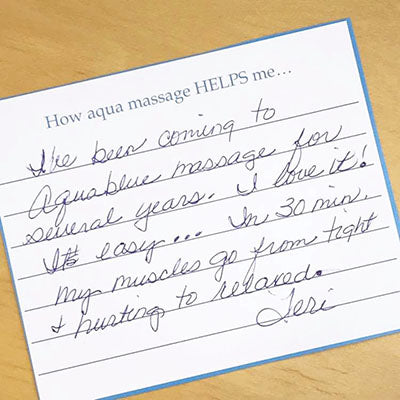 How aqua massage HELPS me...
I've been coming to
Aquablue massage for
several years. I love it!
It's easy... In 30 min.
my muscles go from tight
& hurting to relaxed.
Teri